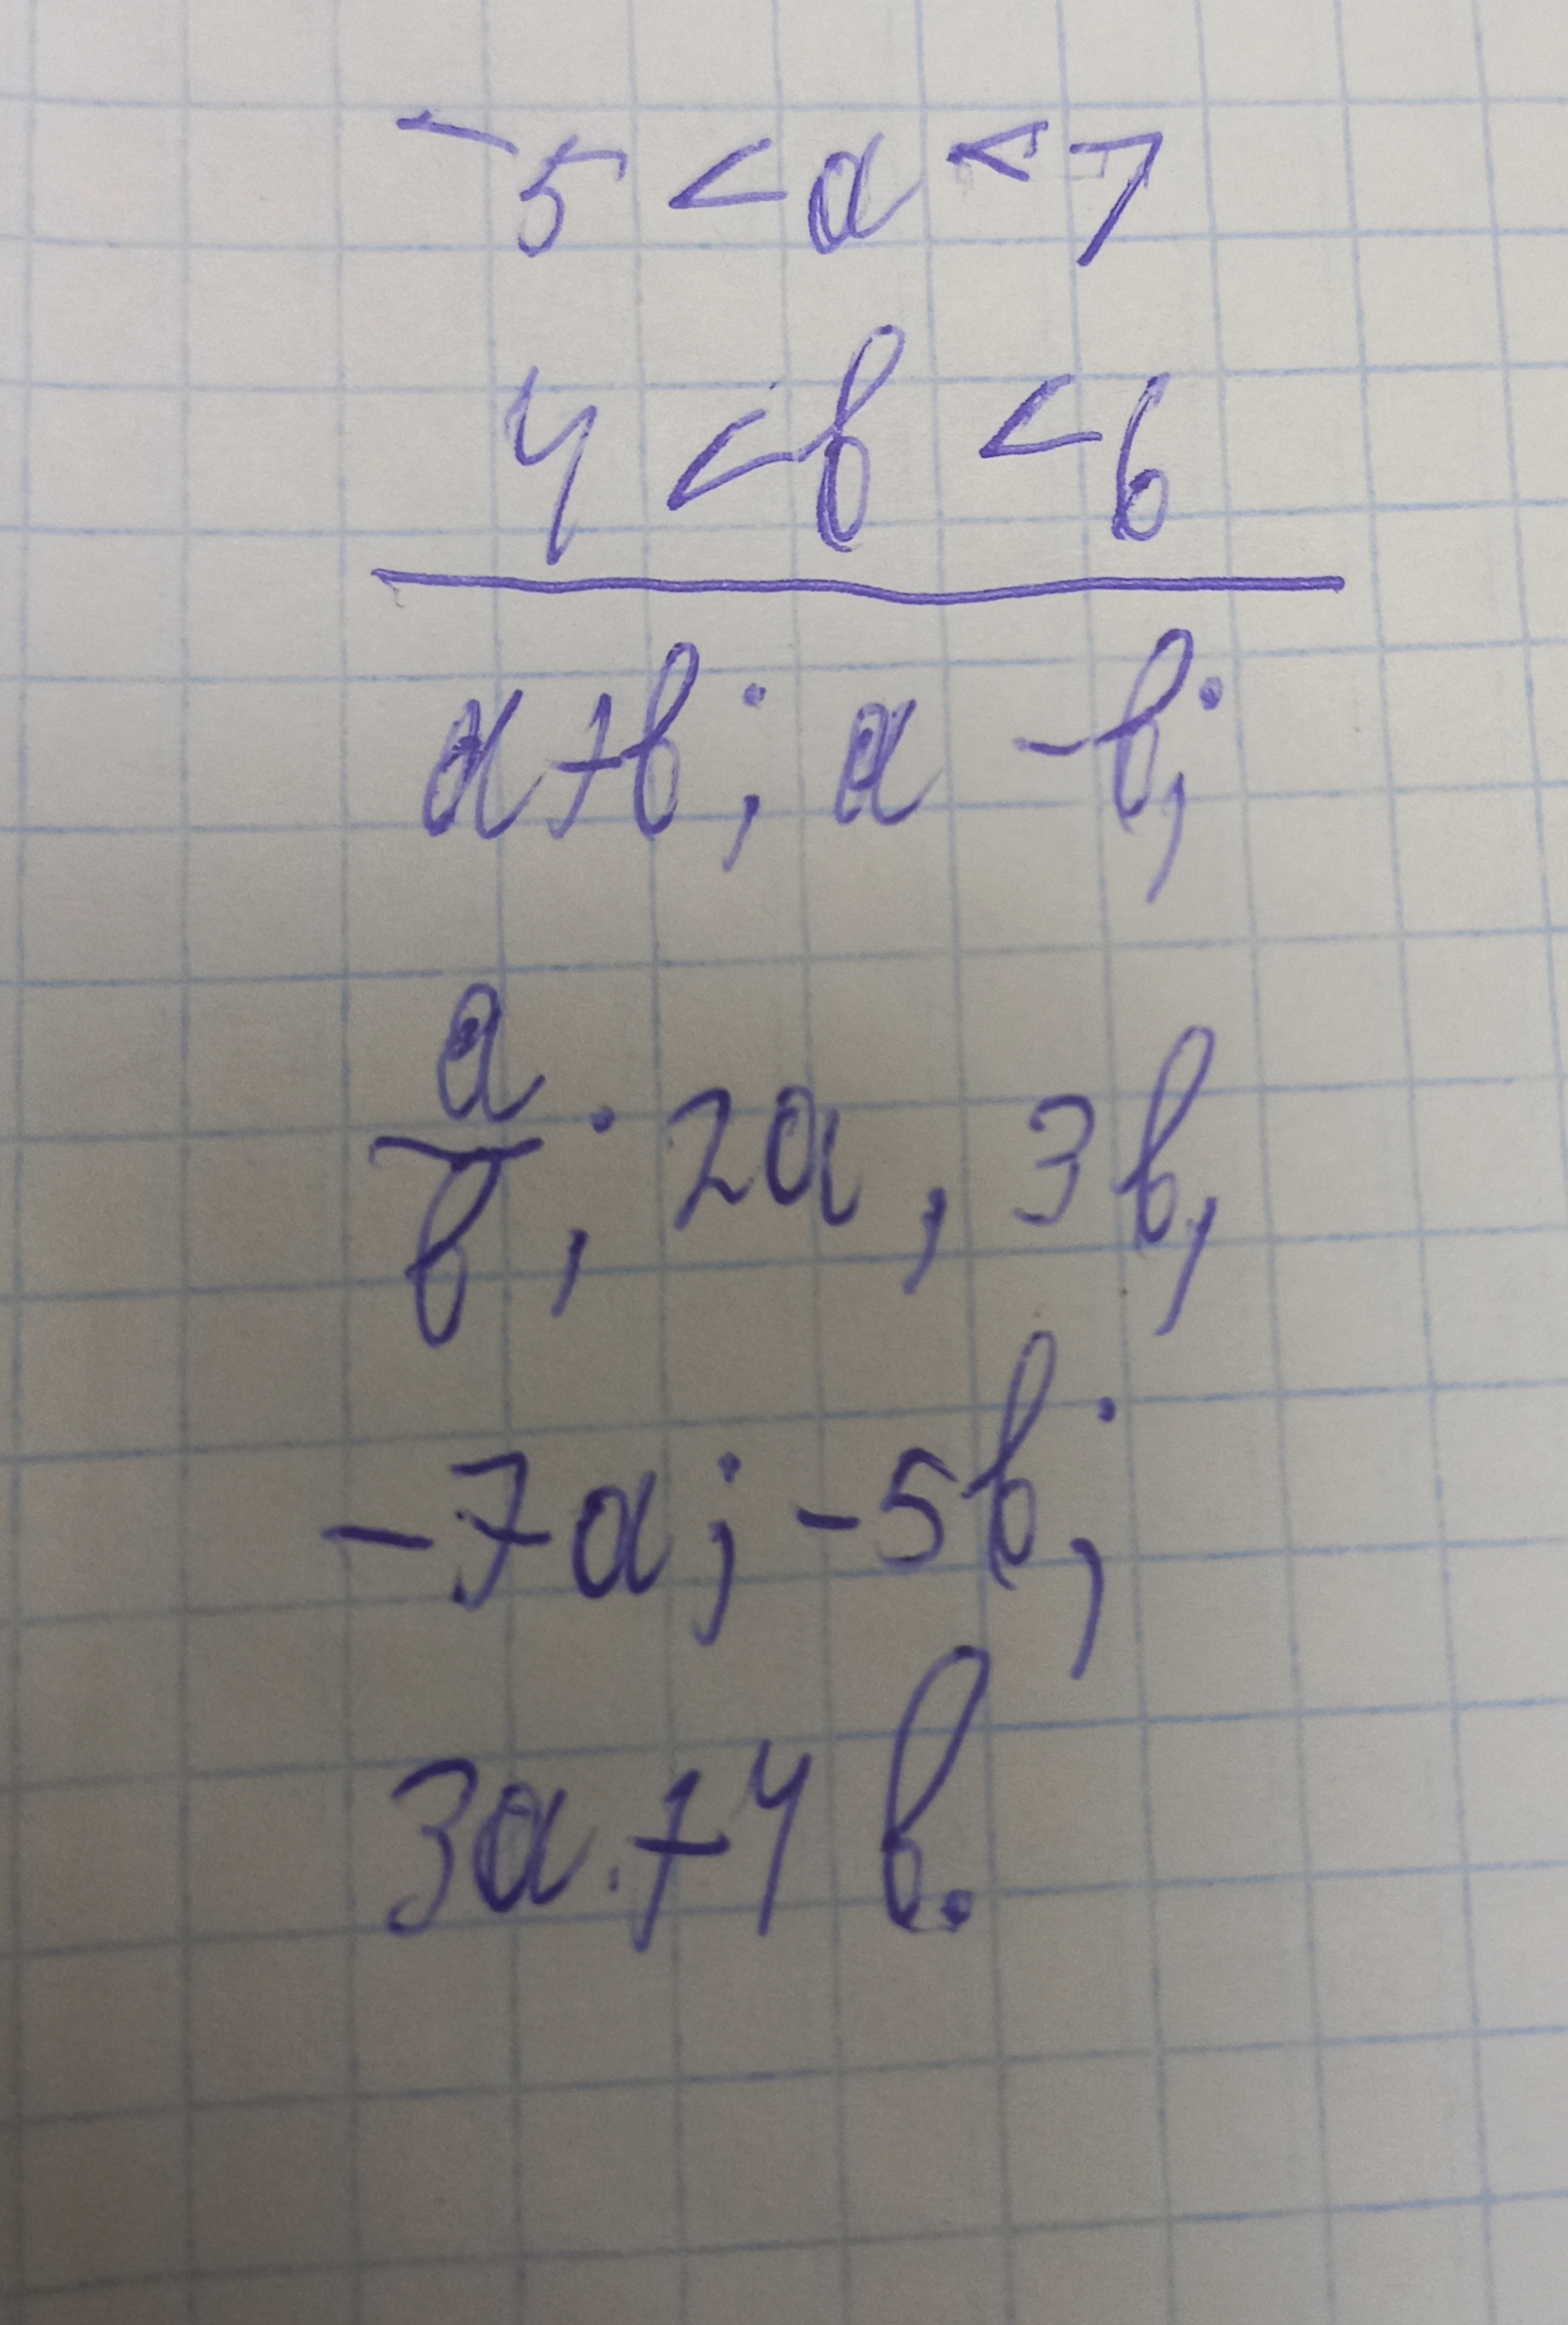 -5 < a < 7
4 < b < 6
a+b; a - b;
a/b; 2a, 3b,
-7a; -5b;
3a + 4b.